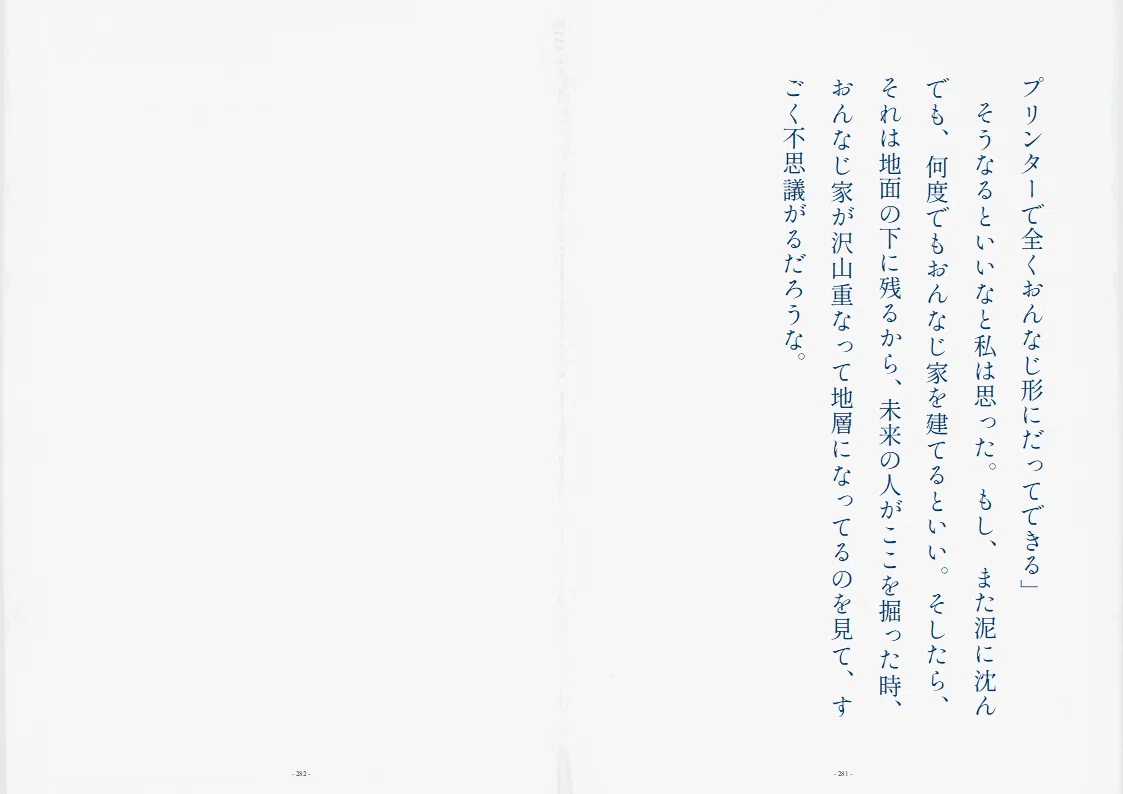 プリンターで全くおんなじ形にだってできる」
　そうなるといいなと私は思った。もし、また泥に沈ん
でも、何度でもおんなじ家を建てるといい。そしたら、
それは地面の下に残るから、未来の人がここを掘った時、
おんなじ家が沢山重なって地層になってるのを見て、す
ごく不思議がるだろうな。
- 281 -
- 282 -